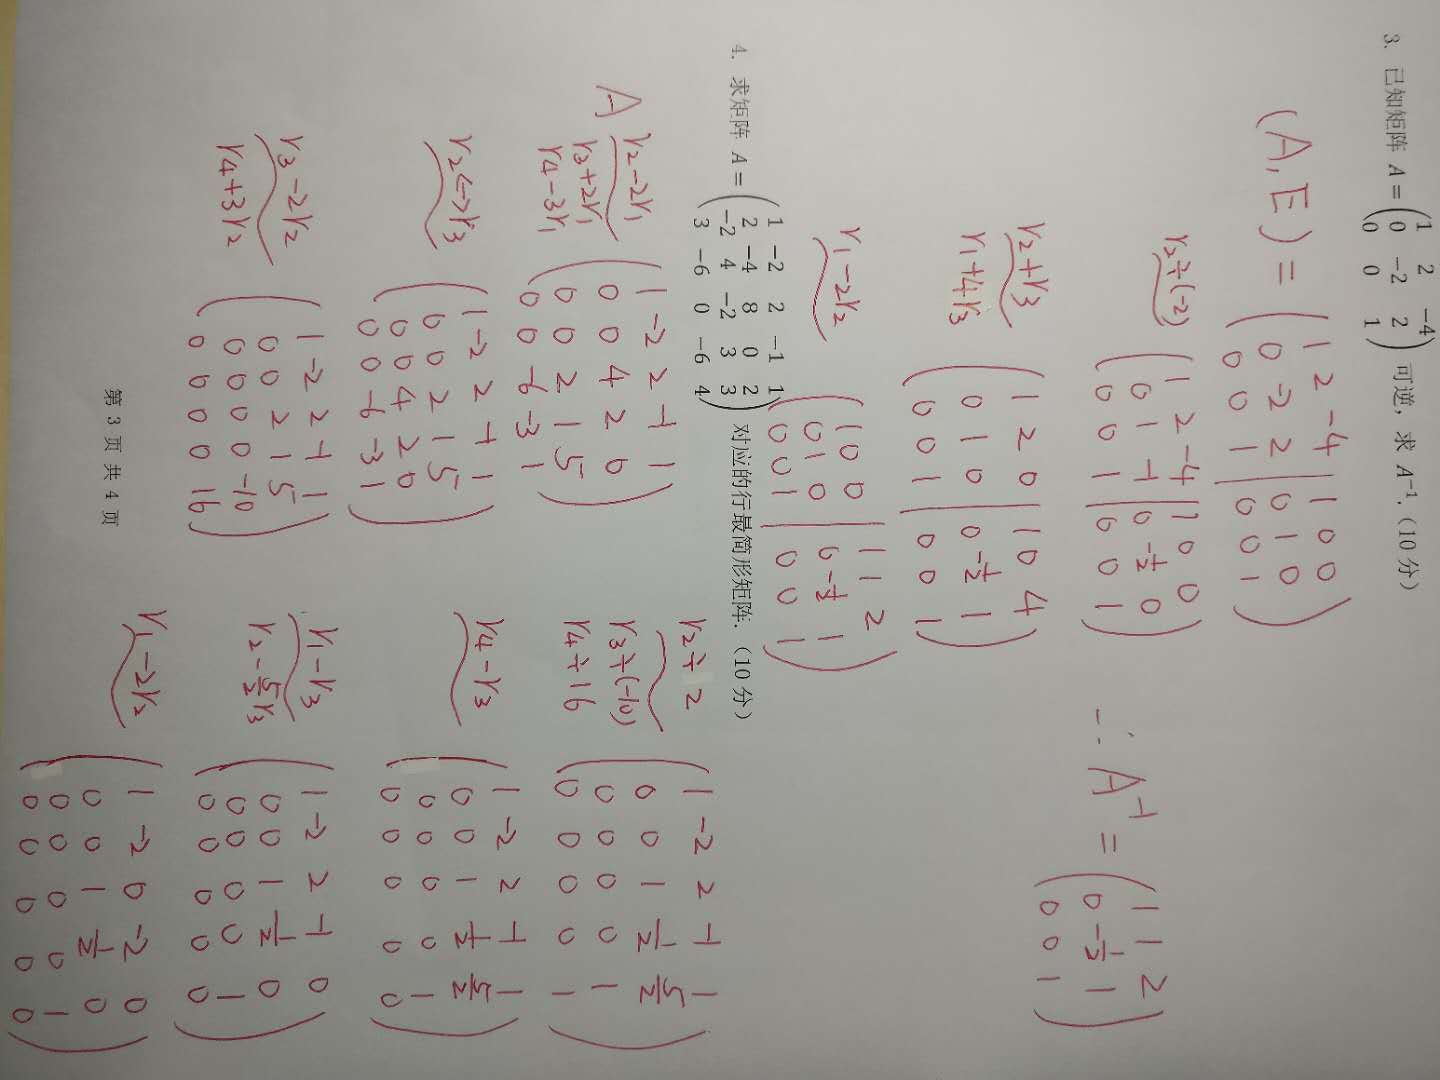 3. 已知矩阵 A = (1 2 −4
0 −2 2
0 0 1) 可逆，求 A⁻¹.（10 分）
(A, E) = (1 2 -4 | 1 0 0
0 -2 2 | 0 1 0
0 0 1 | 0 0 1)
r₂÷(-2) (1 2 -4 | 1 0 0
0 1 -1 | 0 -1/2 0
0 0 1 | 0 0 1)
r₂+r₃
r₁+4r₃ (1 2 0 | 1 0 4
0 1 0 | 0 -1/2 1
0 0 1 | 0 0 1)
r₁-2r₂ (1 0 0 | 1 1 2
0 1 0 | 0 -1/2 1
0 0 1 | 0 0 1)
∴ A⁻¹ = (1 1 2
0 -1/2 1
0 0 1)
4. 求矩阵 A = (1 −2 2 −1 1
2 −4 8 0 2
−2 4 −2 3 3
3 −6 0 −6 4) 对应的行最简形矩阵.（10 分）
A r₂-2r₁
r₃+2r₁
r₄-3r₁ (1 -2 2 -1 1
0 0 4 2 0
0 0 2 1 5
0 0 -6 -3 1)
r₂↔r₃ (1 -2 2 -1 1
0 0 2 1 5
0 0 4 2 0
0 0 -6 -3 1)
r₃-2r₂
r₄+3r₂ (1 -2 2 -1 1
0 0 2 1 5
0 0 0 0 -10
0 0 0 0 16)
r₂÷2
r₃÷(-10)
r₄÷16 (1 -2 2 -1 1
0 0 1 1/2 5/2
0 0 0 0 1
0 0 0 0 1)
r₄-r₃ (1 -2 2 -1 1
0 0 1 1/2 5/2
0 0 0 0 1
0 0 0 0 0)
r₁-r₃
r₂-5/2r₃ (1 -2 2 -1 0
0 0 1 1/2 0
0 0 0 0 1
0 0 0 0 0)
r₁-2r₂ (1 -2 0 -2 0
0 0 1 1/2 0
0 0 0 0 1
0 0 0 0 0)
第 3 页 共 4 页